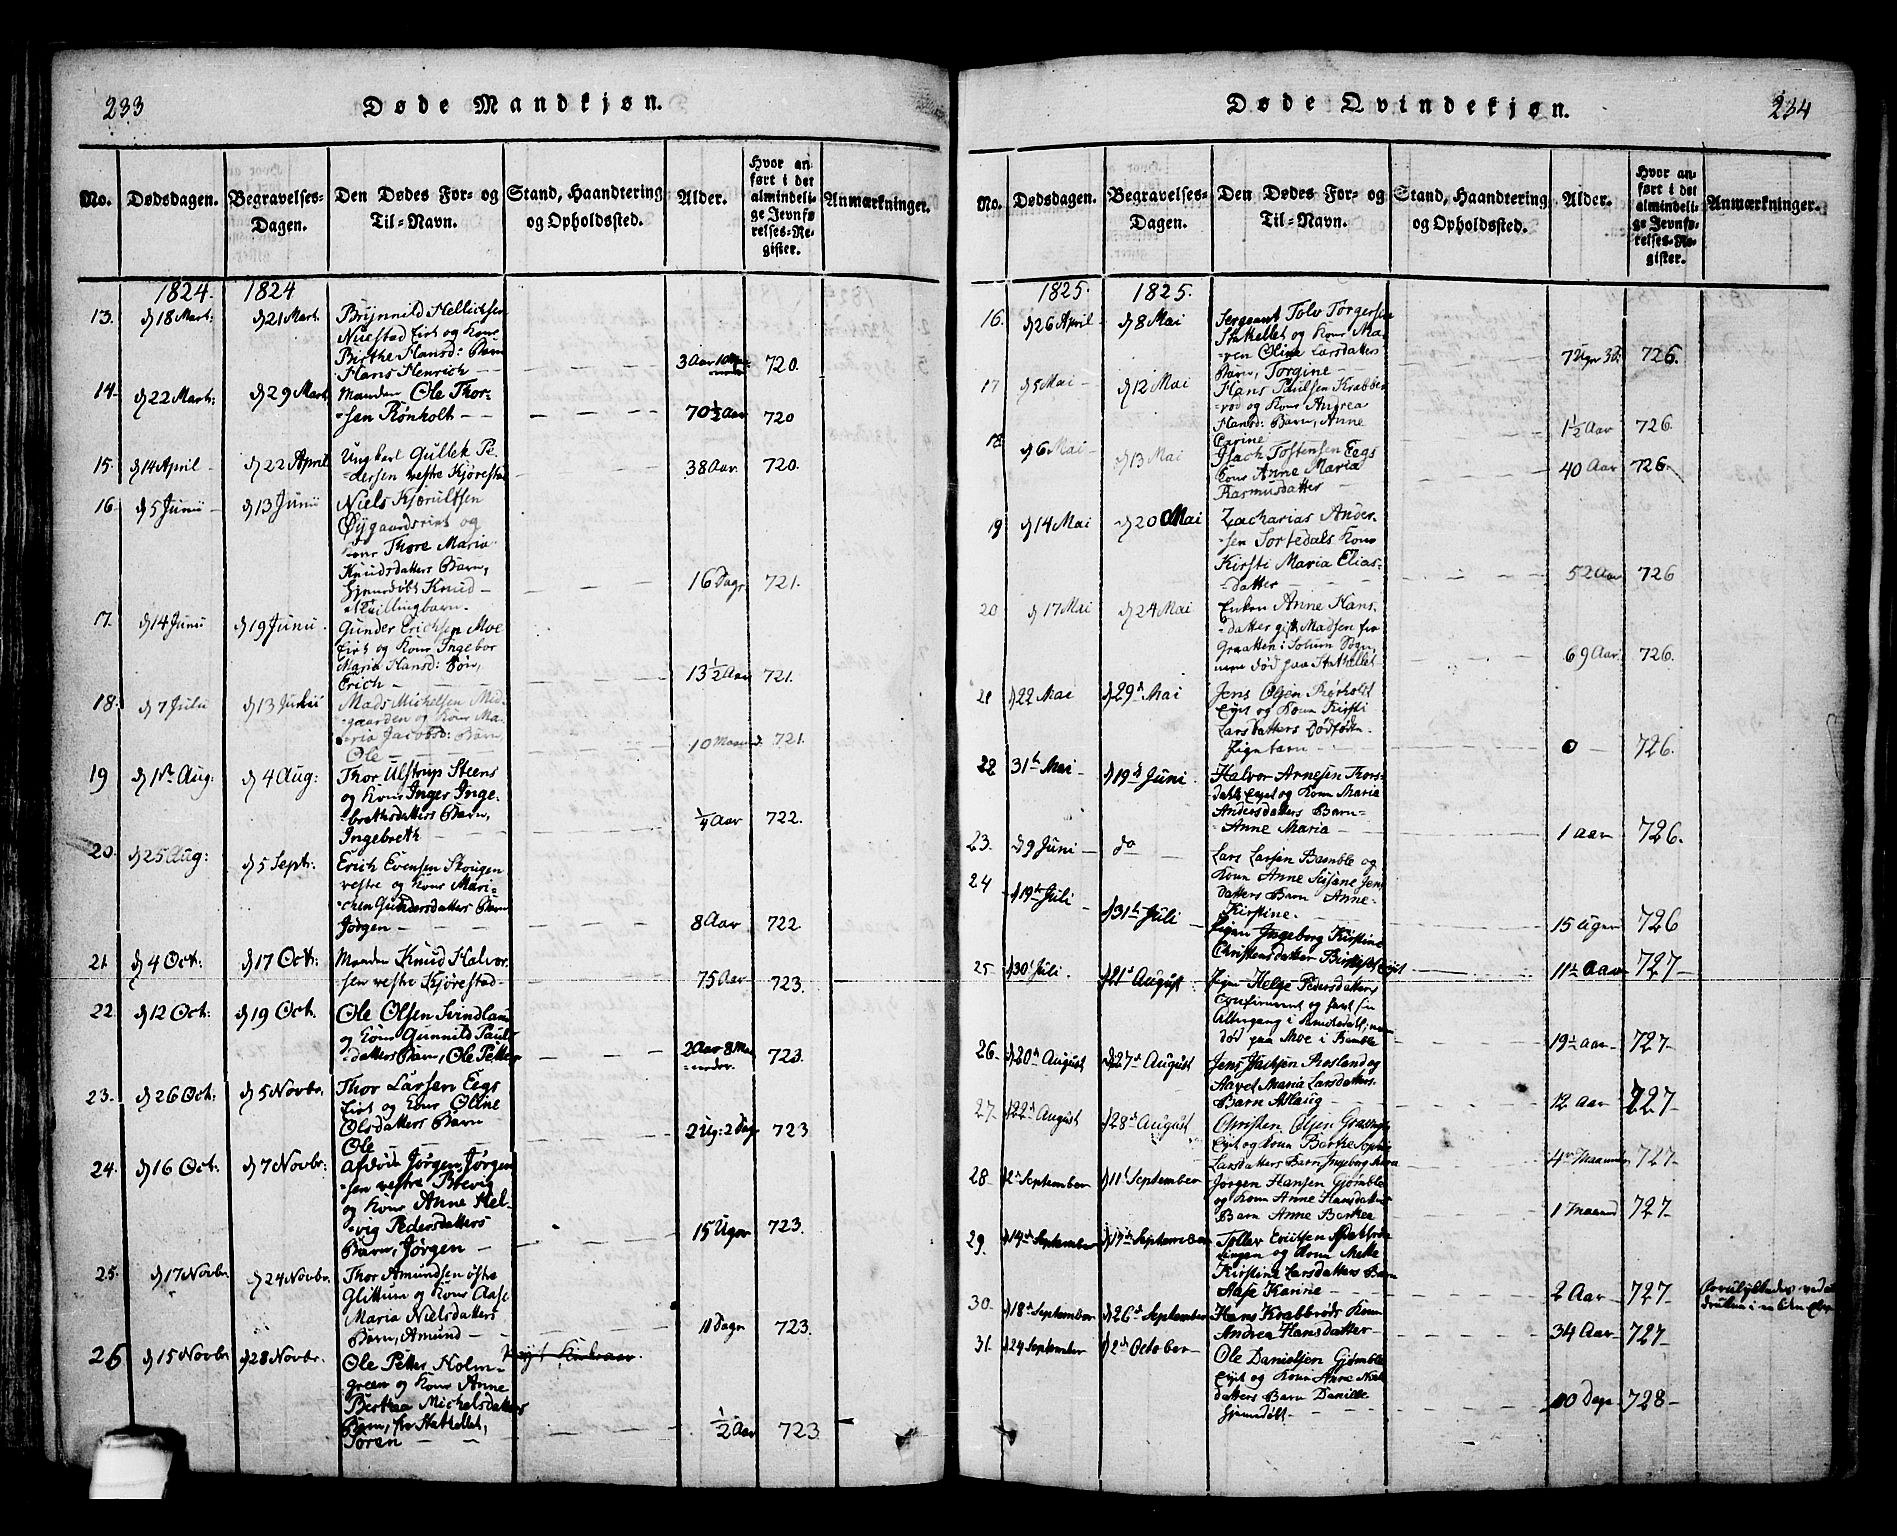 233
Døde Mandkjøn.
No. Dødsdagen. Begravelses-Dagen. Den Dødes For- og Til-Navn. Stand, Haandtering og Opholdssted. Alder. Hvor anført i det almindelige Jevnførelses-Register. Anmærkninger.
1824. 1824
13. d 18 Mart: d 21 Mart. Brynnild Hellichsen
Eiet og Kone
Birthe Hansd: Barn
Hans Henrich — 3 Aar 720.
14. d 22 Mart: d 29 Mart. Manden Ole Thor-
-sen Rønholt — 70½ Aar 720
15. d 14 April d 22 April Ungkarl Gullek Pe-
-dersen vestre Kjørestad 38 Aar. 720.
16. d 5 Junii d 13 Junii Niels
og
Kone Thore Maria
Knudsdatters Barn,
hjemdøbt Knud —
et Tvillingbarn. 16 Dage 721.
17. d 14 Junii d 19 Junii. Gunder Erichsen Moe
Eiet og Kone Ingebor
Maria Hansd: Søn,
Erich — 13½ Aar 721.
18. d 7 Julii d 13 Julii Mads Michelsen Mid-
-gaarden og Kone Ma-
-ria Jacobsd: Barn,
Ole — 10 Maaned. 721.
19 d 1ste Aug: d 4 Aug: Thor Ulstrup Steens
og Kone Inger Inge-
brethsdatters Barn,
Ingebreth — ¼ Aar 722.
20. d 25 Aug: d 5 Septr: Erich Evensen Skougen
vestre og Kone Mari-
-chen Gundersdatters Barn
Jørgen — 8 Aar 722.
21. d 4 Oct: d 17 Oct: Manden Knud Halvor-
-sen vestre Kjørestad — 75 Aar 723.
22. d 12 Oct: d 19 Oct. Ole Olsen Svindland
og Kone Gunnild Pauls-
-datters Barn, Ole Petter 2 Aar 8 Ma- 723.
23. d 26 Oct: d 5 Novbr. Thor Larsen Eegs
Eiet og Kone Oline
Olsdatters Barn
Ole 2 Ug: 2 Dage 723
24. d 16 Oct: d 7 Novbr: Afdøde Jørgen Jørgen-
-sen vestre Brevig
og Kone Anne Hel-
-vig Pedersdatters
Barn, Jørgen — 15 Uger 723.
25. d 17 Novbr d 24 Novbr. Thor Amundsen østre
Glittum og Kone Aase
Maria Nielsdatters
Barn, Amund — 11 Dage 723.
26 d 15 Novbr d 28 Novbr. Ole Petter Holm-
green og Kone Anne
Berthea Michelsdatters
Barn, fra Stathellet,
Søren — ½ Aar 723
234
Døde Qvindekjøn.
No. Dødsdagen. Begravelses-Dagen. Den Dødes For- og Til-Navn. Stand, Haandtering og Opholdssted. Alder. Hvor anført i det almindelige Jevnførelses-Register. Anmærkninger.
1825. 1825.
16. d 26 April d 8 Mai Sergeant Tolv Torgersen
Stathellet og Kone Ma-
-ren Oline Larsdatters
Barn, Torgine — 7 Uger 3 D. 726.
17 d 5 Mai d 12 Mai Hans Paulsen Krabbe-
-rød og Kone Andrea
Hansd: Barn, Anne
Carine 1½ Aar 726.
18. d 6 Mai d 13 Mai Isach Tostensen Eegs
Kone Anne Maria
Rasmusdatter — 40 Aar 726.
19 d 14 Mai d 20 Mai Zacharias Ander-
-sen Sortedals Kone
Kirsti Maria Elias-
-datter — 52 Aar 726
20 d 17 Mai d 24 Mai Enken Anne Hans-
-datter gift Madsen fra
Graatten i Solum Sogn,
men død paa Stathellet 69 Aar 726.
21 d 22 Mai d 29d Mai Jens Olsen Rørholdt
Eiet og Kone Kirsti
Larsdatters Dødføde
Pigebarn — 0 — 726.
22 31te Mai d 19d Juni Halvor Arnesen Thors-
dahl Eyet og Kone Maria
Andersdatters Barn
Anne Maria — 1 Aar 726.
23. d 9 Juni do Lars Larsen Bamble og
Kone Anne Jens-
datters Barn Anne
Kirstine — 15 Uger 726
24 d 19de Juli d 31te Juli Pigen Ingeborg Kirstine
Christensdatter 11½ Aar 727
25. d 30te Juli. d 21d August Pigen Helge Pedersdatter
Confirmeret og
død paa Moe i Bamble 19½ Aar 727
26. d 20d August d 27d August Jens Isachsen Rosland og
Aavet Maria Larsdatters
Barn Aslaug — 12 Aar 727
27. d 22d August d 28d August Christen Olsen
Eyet og Kone Berthe Sophie
Larsdatters Barn Ingeborg Maria 4re Maaneder 727
28. d 2d September d 11te September Jørgen Hansen Gjømble
og Kone Anne Hansdatters
Barn Anne Berthea 1 Maaned 727
29. d 14de September d 17de September Tollev
og Kone Mette
Kirstine Larsdatters Barn
Aase Karine — 2 Aar 727 Forulykkedes ved at
drukne i en liden Elv
30. d 18de September d 26de September Hans Krabberøds Kone
Andrea Hansdatter — 34 Aar 727
31. d 24 September d 2d October Ole Danielsen Gjømble
Eyet og Kone Anne Niels-
datters Barn Danille
hjemdøbt — 10 Dage 728